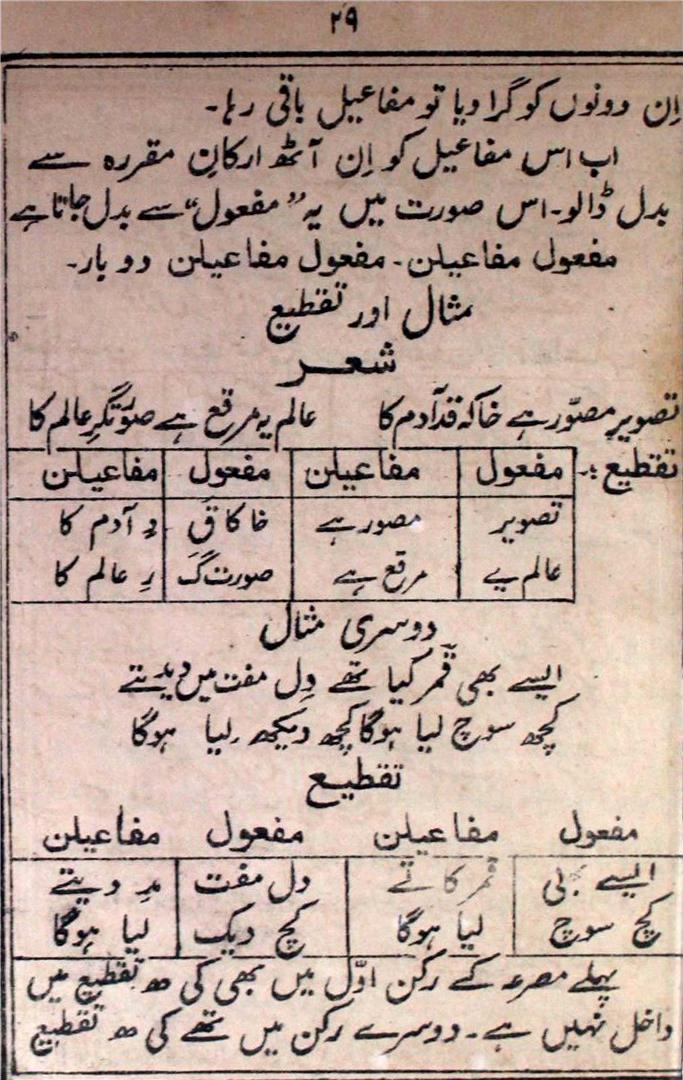 ۲۹
اِن دونوں کو گرا دیا تو مفاعیل باقی رہا۔
اب اس مفاعیل کو اِن آٹھ ارکانِ مقررہ سے
بدل ڈالو۔ اس صورت میں یہ ”مفعول“ سے بدل جاتا ہے
مفعول مفاعیلن۔ مفعول مفاعیلن دو بار۔
مثال اور تقطیع
شعر
تصویرِ مصوّر ہے خاکہ قدِ آدم کا عالم یہ مرقع ہے صورتگرِ عالم کا
تقطیع :۔ مفعول مفاعیلن مفعول مفاعیلن
تصویر مصور ہے خاکا قَ دِ آدم کا
عالم یے مرقع ہے صورت گَ رِ عالم کا
دوسری مثال
ایسے بھی قمر کیا تھے دِل مفت میں دیدیتے
کچھ سوچ لیا ہوگا کچھ دیکھ لیا ہوگا
تقطیع
مفعول مفاعیلن مفعول مفاعیلن
ایسے بی قمر کا تے دل مفت مدِ دیتے
کچ سوچ لیا ہوگا کچ دیک لیا ہوگا
پہلے مصرعہ کے رکن اوّل میں بھی کی ھ تقطیع میں
داخل نہیں ہے۔ دوسرے رکن میں تھے کی ھ تقطیع